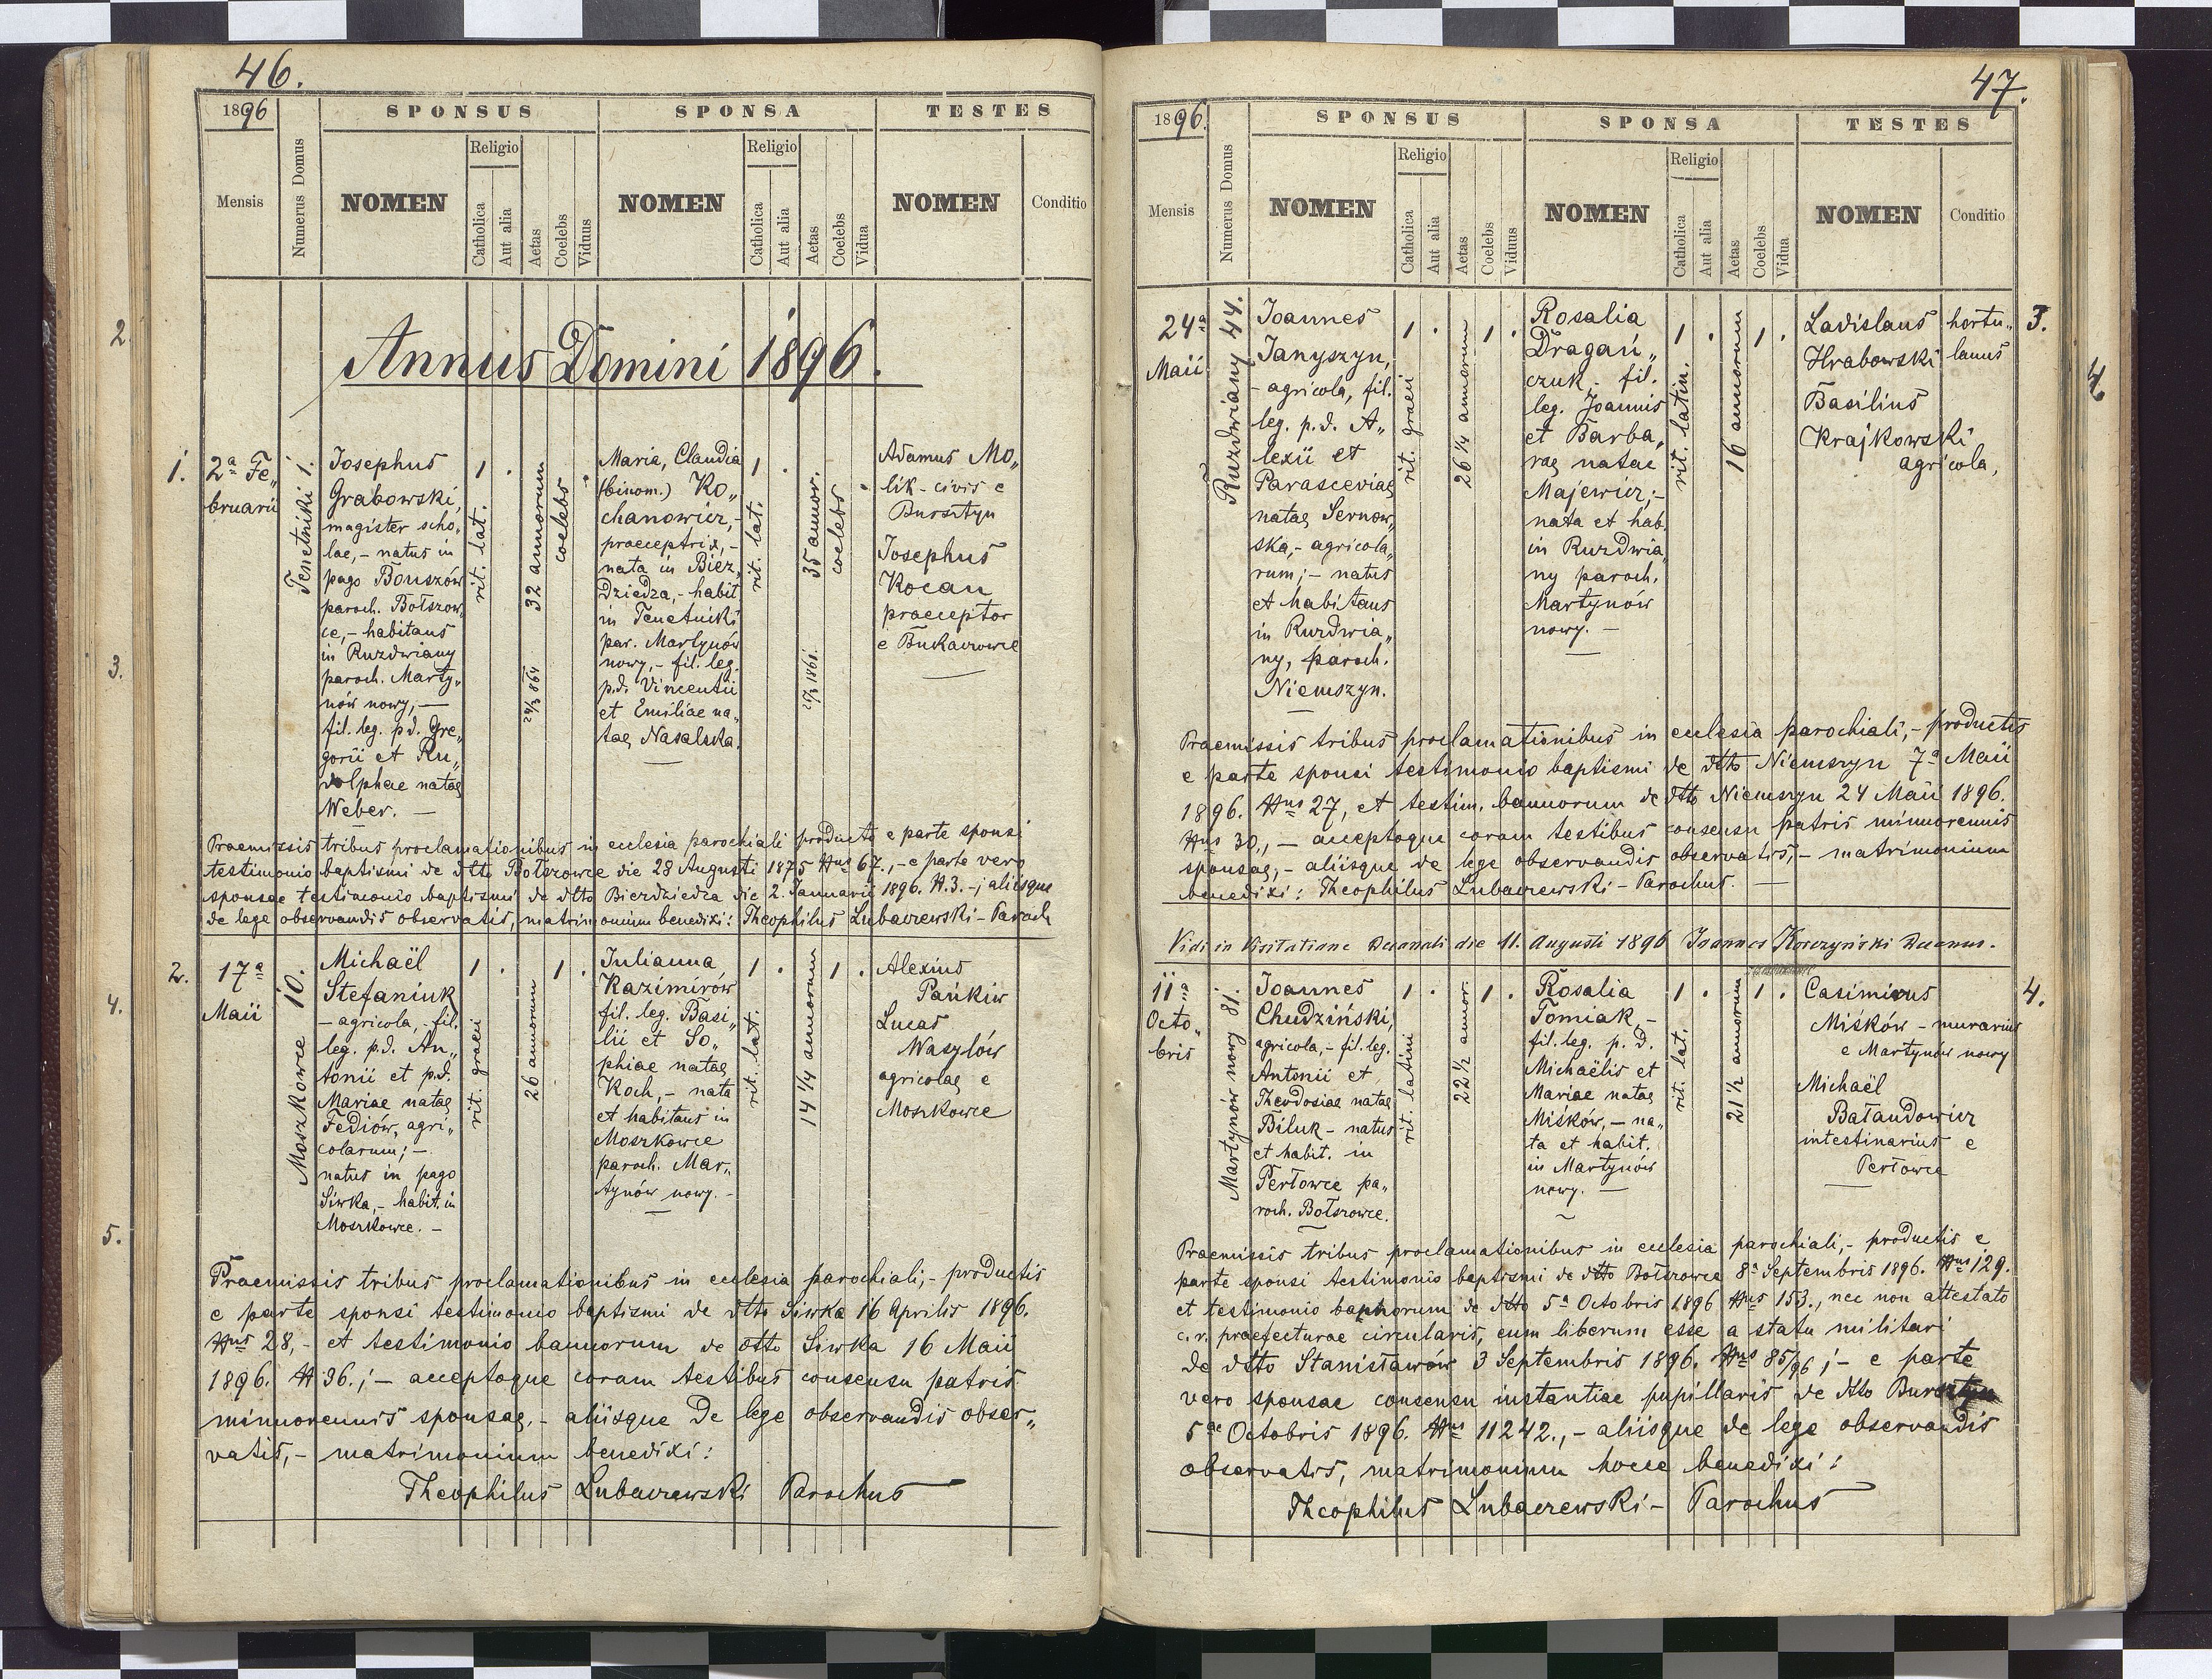 46.
1896
SPONSUS
SPONSA
TESTES
Mensis
Numerus Domus
NOMEN
Religio
Catholica
Aut alia
Aetas
Coelebs
Viduus
NOMEN
Religio
Catholica
Aut alia
Aetas
Coelebs
Vidua
NOMEN
Conditio
Annus Domini 1896.
1.
2ª Fe„
bruarii
Tenetniki 1.
Josephus
Grabowski,
magister scho„
lae,- natus in
pago Bouszów
paroch. Bołszow„
ce,- habitans
in Ruzdwiany
paroch. Marty„
nów nowy,-
fil. leg. p.d. Gre„
gorii et Ru„
dolphae natae
Weber. -
1 .
rit. lat.
32 annorum
24/3 864
coelebs
Maria, Claudia
(binom.) Ko„
chanowicz,-
praeceptrix,-
nata in Bierz„
dziedza,- habit
in Tenetniki
par. Martynów
nowy,- fil. leg.
p.d. Vincentii
et Emiliae na„
tae Nasalska.
1 .
rit. lat.
35 annor.
27/3 1861.
coelebs
Adamus Mo„
lik - civis e
Bursztyn
Josephus
Kocan
praeceptor
e Bukaczowce
Praemissis tribus proclamationibus in ecclesia parochiali producto e parte sponsi
testimonio baptismi de dtto Bołszowce die 28 Augusti 1875 Nus 67.,- e parte vero
sponsae testimonio baptismi de dtto Bierzdziedza die 2. Januarii 1896. N.3.-; aliisque
de lege observandis observatis, matrimonium benedixi: Theophilus Lubaczewski - Paroch
2.
17ª
Maii
Moszkowce 10.
Michaël
Stefaniuk
- agricola, fil.
leg. p.d. An„
tonii et p.d.
Mariae natae
Fediów, agri„
colarum; -
natus in pago
Siwka,- habit. in
Moszkowce. -
1 .
rit. graeci
26 annorum
1 .
Julianna
Kazimirów
fil. leg. Basi„
lii et So„
phiae natae
Koch,- nata
et habitans in
Moszkowce
paroch. Mar„
tynów nowy. -
1 .
rit. lat.
14 1/4 annorum
1 .
Alexius
Pańkiw
Lucas
Wasylów
agricolae e
Moszkowce
Praemissis tribus proclamationibus in ecclesia parochiali,- productis
e parte sponsi testimonio baptismi de dtto Siwka 16 Aprilis 1896.
Nus 28,- et testimonio bannorum de dtto Siwka 16 Maii
1896. N 36.; - acceptoque coram testibus consensu patris
minorennis sponsae,- aliisque de lege observandis obser„
vatis,- matrimonium benedixi:
Theophilus Lubaczewski Parochus
47.
1896.
SPONSUS
SPONSA
TESTES
Mensis
Numerus Domus
NOMEN
Religio
Catholica
Aut alia
Aetas
Coelebs
Viduus
NOMEN
Religio
Catholica
Aut alia
Aetas
Coelebs
Vidua
NOMEN
Conditio
24ª
Maii
Ruzdwiany 44.
Joannes
Janyszyn,
- agricola, fil.
leg. p.d. A„
lexii et
Parasceviae
natae Sernow„
ska,- agricola„
rum;- natus
et habitans
in Ruzdwia„
ny, paroch.
Niemszyn.
1 .
rit. graeci
26 1/4 annorum
1 .
Rosalia
Dragań„
czuk,- fil.
leg. Joannis
et Barba„
rae natae
Majewicz,-
nata et hab.
in Ruzdwia„
ny paroch.
Martynów
nowy. -
1 .
rit. latin.
16 annorum
1 .
Ladislaus
Hrabowski
hortu„
lanus
Basilius
Krajkowski
agricola,
3.
Praemissis tribus proclamationibus in ecclesia parochiali,- productis
e parte sponsi testimonio baptismi de dtto Niemszyn 7ª Maii
1896. Nus 27, et testim. bannorum de dtto Niemszyn 24 Maii 1896.
Nus 30., - acceptoque coram testibus consensu patris minorennis
sponsae,- aliisque de lege observandis observatis,- matrimonium
benedixi: Theophilus Lubaczewski - Parochus. -
Vidi in Visitatione Decanali die 11. Augusti 1896 Joannes Korczyński Decanus.
11ª
Octo„
bris
Martynów nowy 81.
Joannes
Chudziński,
agricola,- fil. leg.
Antonii et
Theodosiae natae
Biluk - natus
et habit. in
Perłowce pa„
roch. Bołszowce.
1 .
rit. latini
22 1/2 annor.
1 .
Rosalia
Tomiak,-
fil. leg. p. d.
Michaëlis et
Mariae natae
Miśków,- na„
ta et habit.
in Martynów
nowy. -
1 .
rit. lat.
21 1/2 annorum
1 .
Casimirus
Miśków - murarius
e Martynów nowy
Michaël
Bałandowicz
intestinarius e
Perłowce
4.
Praemissis tribus proclamationibus in ecclesia parochiali,- productis e
parte sponsi testimonio baptismi de dtto Bołszowce 8ª Septembris 1896. Nus 129.
et testimonio bannorum de dtto 5ª Octobris 1896 Nus 153., nec non attestato
c.r. praefecturae circularis, eum liberum esse a statu militari
de dtto Stanisławów 3 Septembris 1896. Nus 85/96; - e parte
vero sponsae consensu instantiae pupillaris de dtto Bursztyn
5 de Octobris 1896. Nus 11242.,- aliisque de lege observandis
observatis, matrimonium hocce benedixi:
Theophilus Lubaczewski - Parochus
2.
3.
4.
5.
4